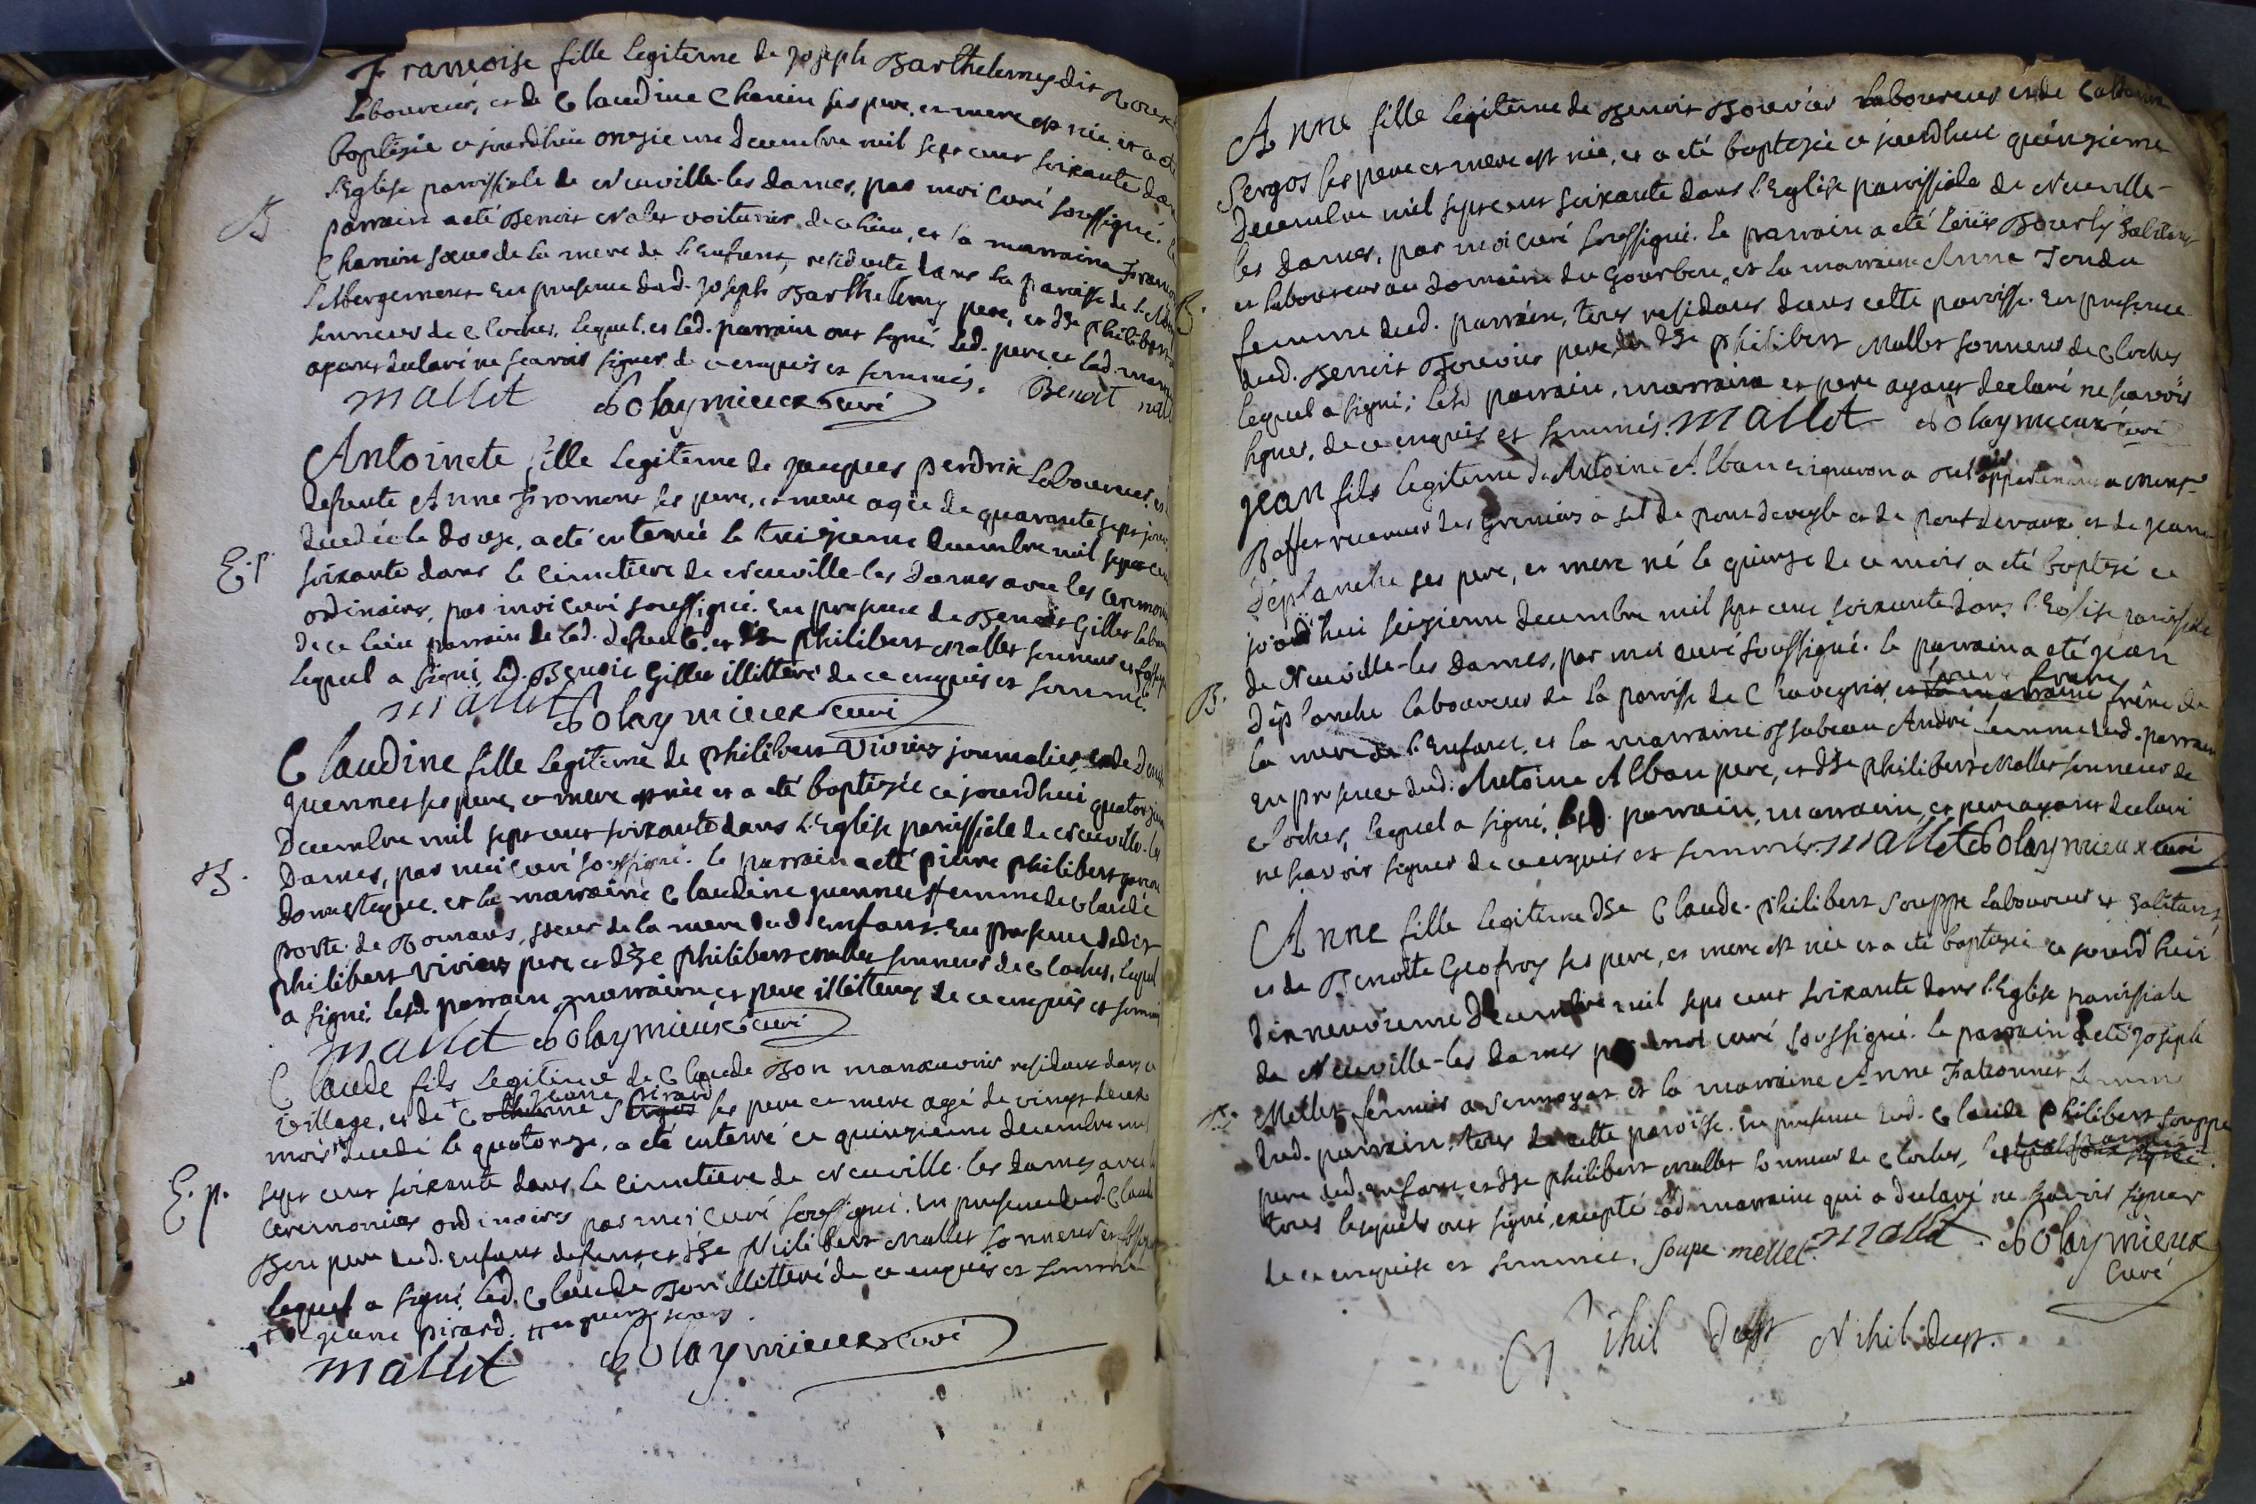 Francoise fille Legitime de Joseph Barthelemy dit Roux
Laboureur, et de Claudine Chanin ses pere, et mere est née, et a eté
baptisée ce jourdhui onzieme decembre mil sept cent soixante dans
l'Eglise paroissiale de Neuville-les dames, par moi curé soussigné. Le
B
parrain a eté Benoit Nalet voiturier de ce lieu, et la marraine
Chanin soeur de la mere de l'Enfant, residente dans la paroisse de
l'Abergement. En presence dud. Joseph Barthelemy pere, et dse philibert
sonneur de Cloches, Lequel, et led. parrain ont signé led. pere et lad. marraine
ayant declaré ne scavoir signer de ce enquis et sommés. Benoit nalet
mallet Solaymieux curé
Antoinete fille Legitime de jacques perdrix Laboureur, et
defunte Anne Fromont ses pere, et mere agée de quarante sept jours
decedée le douze, a eté enterrée le treizieme decembre mil sept cent
E. p.
soixante dans le cimetiere de Neuville-les Dames avec les ceremonies
ordinaires, par moi curé soussigné. En presence de Benoit Gillet labour
de ce lieu parrain de lad. defunte, et dse philibert Mallet sonneur et fossoy
lequel a signé led. Benoit Gillet illitteré de ce enquis et sommé.
mallet Solaymieux curé
Claudine fille Legitime de philibert Vivier journalier, et de
quennet ses pere, et mere est née et a eté baptizée ce jourdhui quatorzieme
Decembre mil sept cent soixante dans l'Eglise paroissiale de Neuville-les
B.
Dames, par moi curé soussigné. le parrain a eté pierre philibert garcon
domestique. et la marraine Claudine quennet femme de Claude
porte de Romans, soeur de la mere dud enfant. En presence dedit
philibert Vivier pere et dse philibert mallet sonneur de Cloches, lequel
a signé. lesd. parrain, marraine et pere illitterez de ce enquis et sommés
mallet Solaymieux curé
Claude fils Legitime de Claude Bon manoeuvre residant dans ce
jeanne pirard
village, et de + Catherine Sergos ses pere et mere agé de vingt deux
mois decedé le quatorze, a eté enterré ce quinzieme decembre mil
E. p.
sept cent soixante dans le cimetiere de Neuville-les dames avec les
ceremonies ordinaires par moi curé soussigné. En presence dud. Claude
Bon pere dud. enfant defunt, et dse Philibert Mallet sonneur et fossoyeur
lequel a signé led. Claude Bon illitteré de ce enquis et sommé
+ jeanne pirard.
mallet Solaymieux curé
Anne fille Legitime de Benoit Bouvier laboureur et de Catherine
Sergos ses pere et mere est née, et a eté baptizée ce jourdhui quinzieme
Decembre mil sept cent soixante dans l'Eglise paroissiale de Neuville-
les Dames, par moi curé soussigné. Le parrain a eté Loüis Bourly habitant
B.
et laboureur au domaine du Gourbon, et la marraine Anne Tondu
femme dud. parrain, tous residans dans cette paroisse. En presence
dud. Benoit Bouvier pere, et dse philibert Mallet sonneur de Cloches
lequel a signé; Lesd parrain, marraine et pere ayant declaré ne scavoir
signer, de ce enquis et sommés. Mallet Solaymieux curé
jean fils Legitime de Antoine Alban a Monsr
Boffet receveur des Greniers a sel de pont de veyle et de pont de vaux et de jeanne
Déplanche ses pere, et mere né le quinze de ce mois a eté baptizé ce
jourd'hui seizieme decembre mil sept cent soixante dans l'Eglise paroissiale
de Neuville-les Dames, par moi curé soussigné. le parrain a eté jean
B.
Déplanche laboureur de la paroisse de Chaveyria, et la marraine frère de
la mere de l'Enfant, et la marraine Isabeau André femme dud. parrain
En presence dud. Antoine Alban pere, et dse philibert Mallet sonneur de
cloches, lequel a signé, lesd. parrain, marraine, et pere ayant declaré
ne scavoir signer de ce enquis et sommés. Mallet Solaymieux curé
Anne fille Legitime dse Claude-philibert Souppe laboureur et habitant,
et de Benoite Geofroy ses pere, et mere est née et a eté baptizée ce jourd'hui
dixneuvieme decembre mil sept cent soixante dans l'Eglise paroissiale
de Neuville-les Dames par moi curé soussigné. le parrain a eté Joseph
B.
Mellet fermier a et la marraine Anne Falconnet femme
dud. parrain. tous de cette paroisse. En presence dud. Claude philibert Souppe
pere dud. enfant et dse philibert Mallet sonneur de Cloches,
tous lesquels ont signé, excepté lad. marraine qui a declaré ne scavoir signer
de ce enquise et sommée. Soupe mellet mallet. Solaymieux
Curé
Nihil deest Nihil deest.